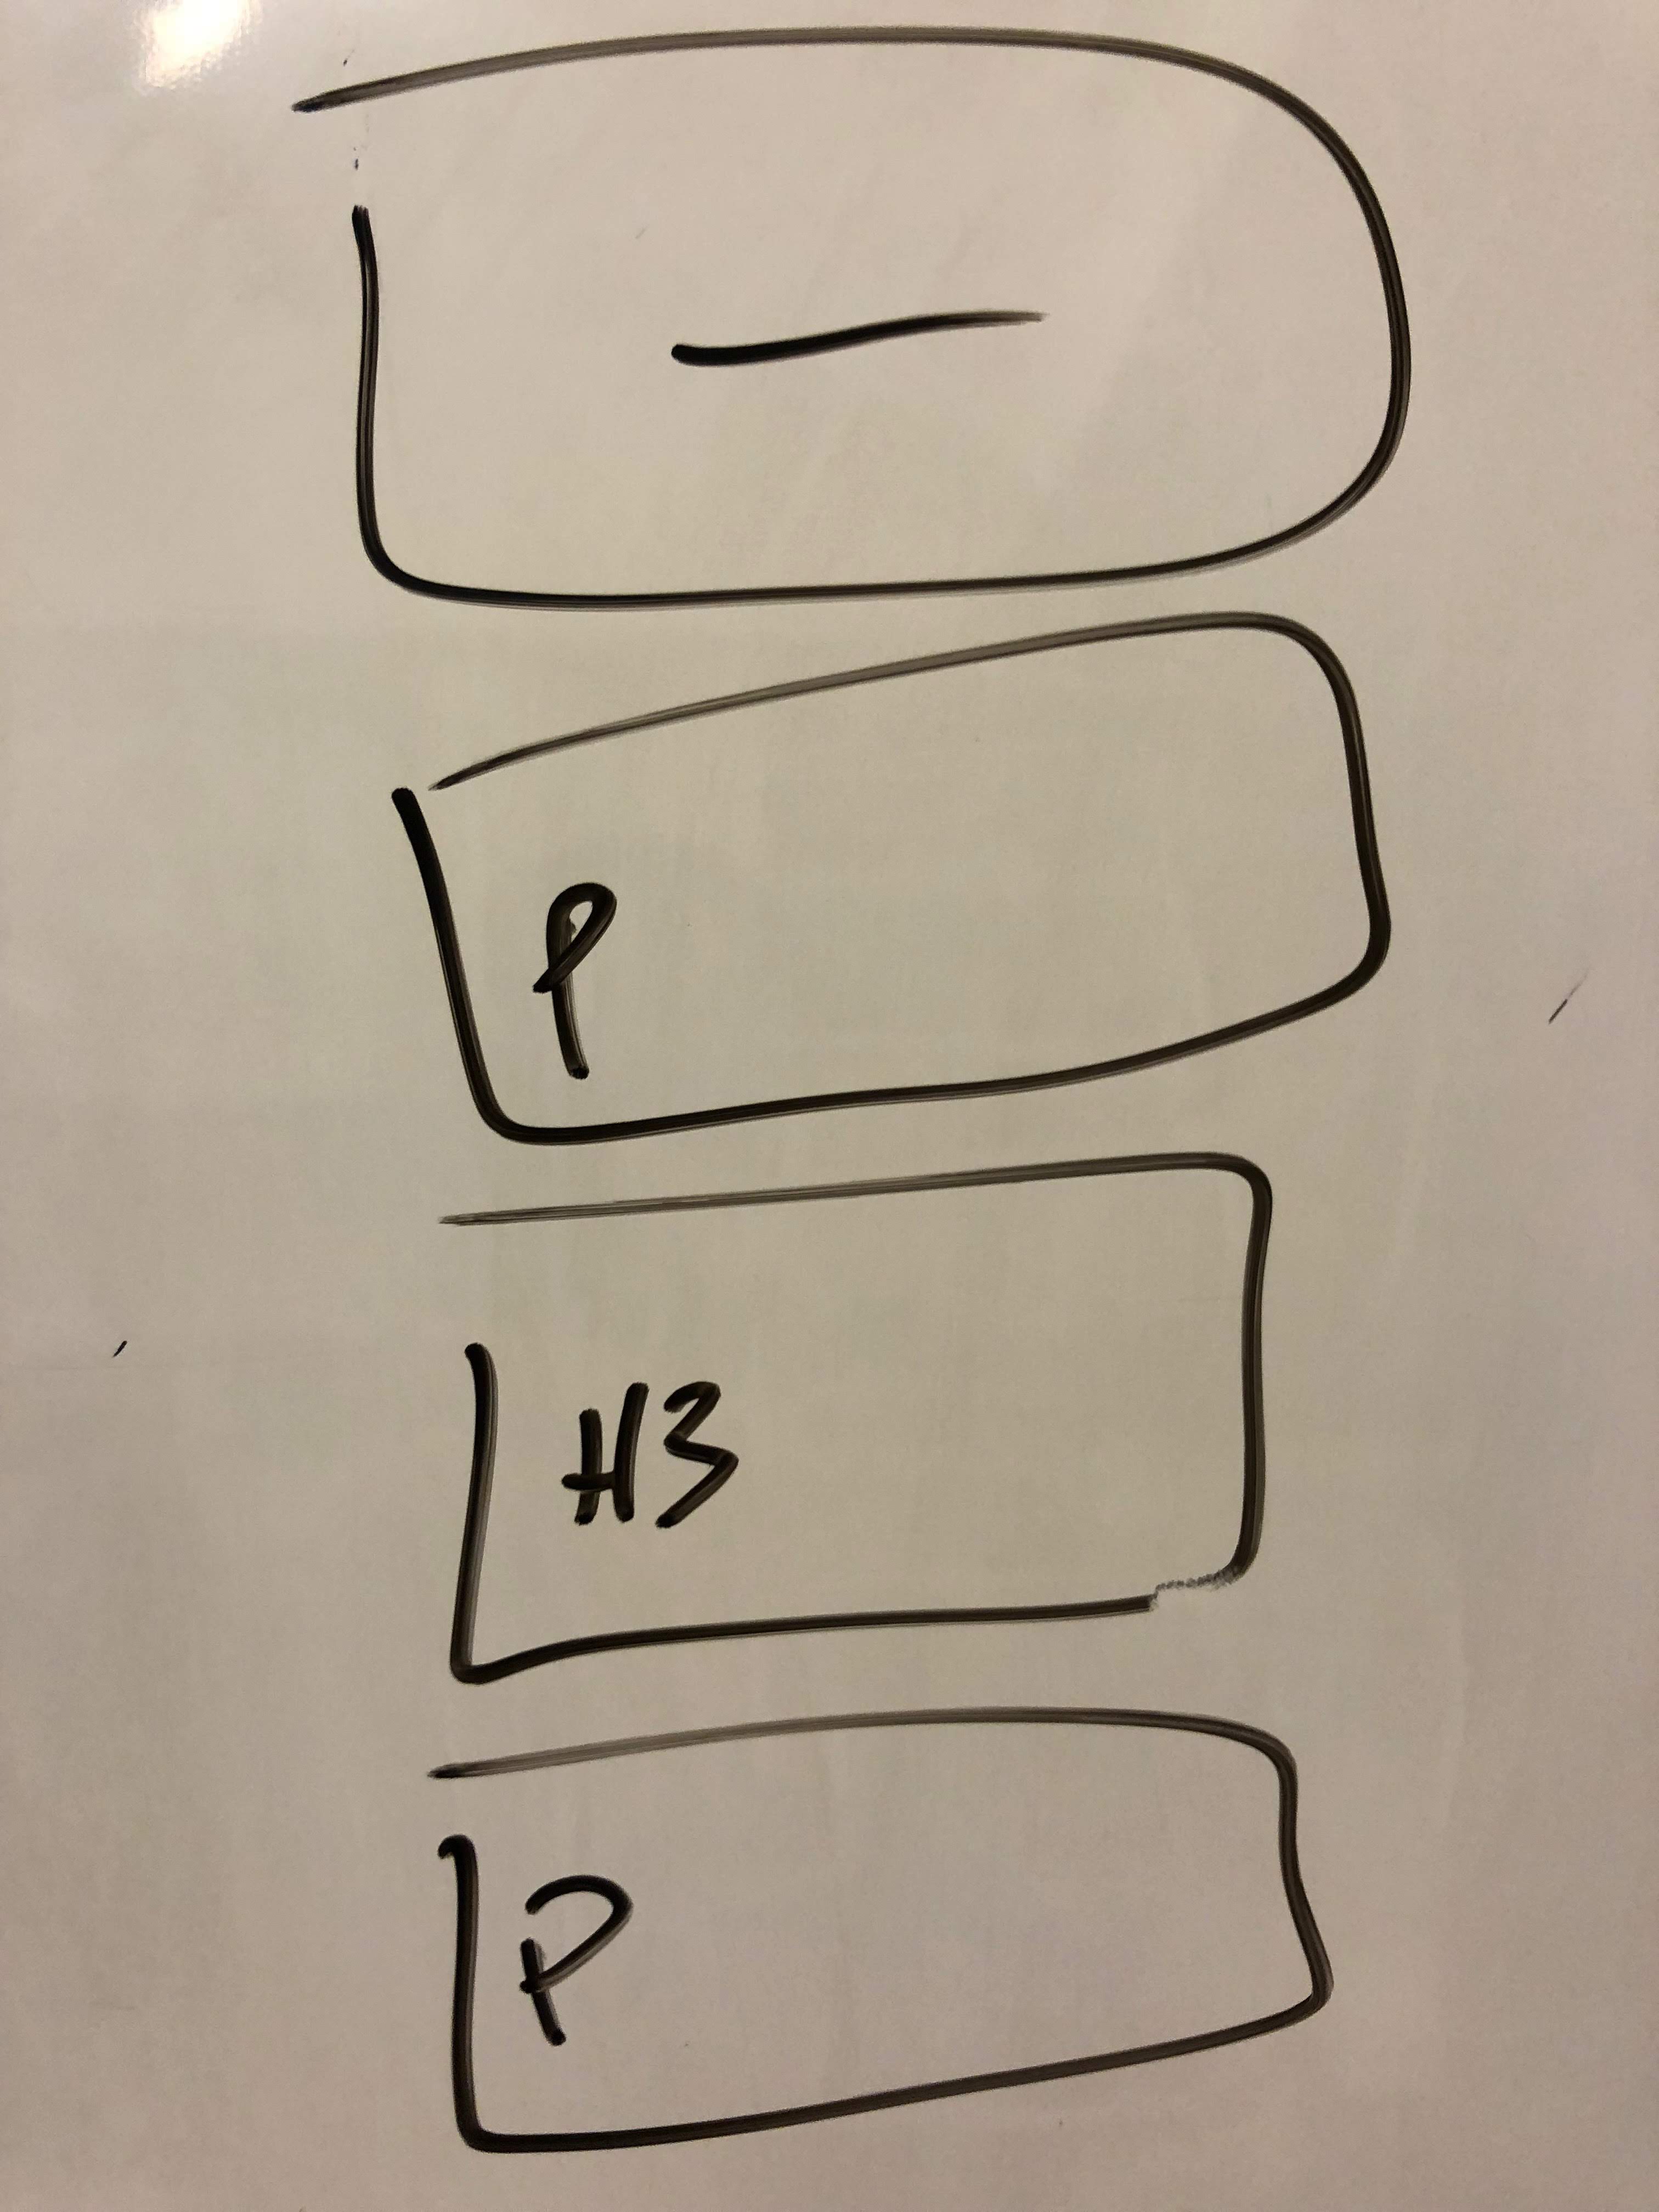 —
P
H3
P